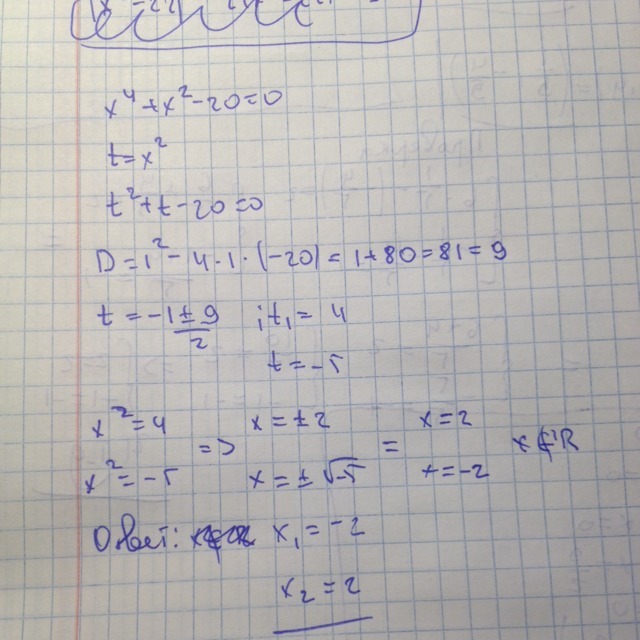 x⁴+x²-20=0
t=x²
t²+t-20=0
D=1²-4·1·(-20)=1+80=81=9
t=-1±9/2 ; t₁=4
t=-5
x²=4 => x=±2 = x=2 x∉ℝ
x²=-5 x=±√-5 x=-2
Ответ: x₁=-2
x₂=2